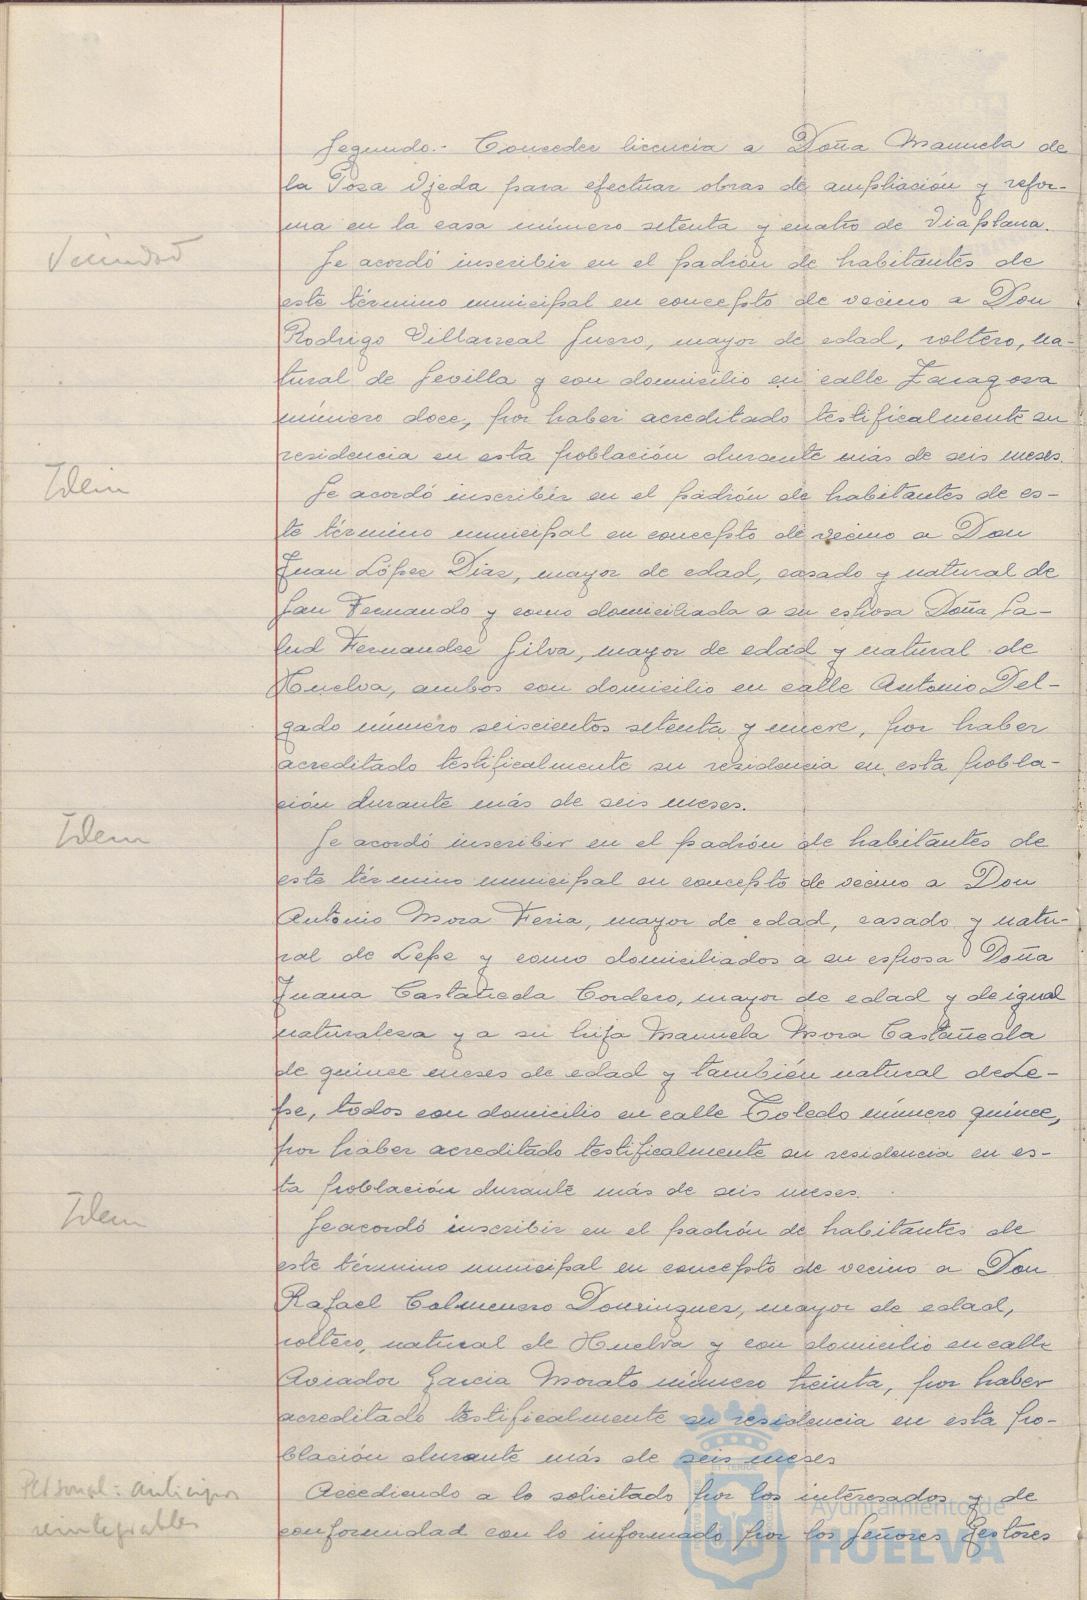 Segundo.- Conceder licencia a Doña Manuela de
la Posa Ojeda para efectuar obras de ampliación y refor-
ma en la casa número setenta y cuatro de Viaplana.
Vecindad
Se acordó inscribir en el padrón de habitantes de
este término municipal en concepto de vecino a Don
Rodrigo Villarreal Suero, mayor de edad, soltero, na-
tural de Sevilla y con domicilio en calle Zaragoza
número doce, por haber acreditado testificalmente su
residencia en esta población durante más de seis meses.
Idem
Se acordó inscribir en el padrón de habitantes de es-
te término municipal en concepto de vecino a Don
Juan López Diaz, mayor de edad, casado y natural de
San Fernando y como domiciliada a su esposa Doña Sa-
lud Fernandez Silva, mayor de edad y natural de
Huelva, ambos con domicilio en calle Antonio Del-
gado número seiscientos setenta y nueve, por haber
acreditado testificalmente su residencia en esta pobla-
ción durante más de seis meses.
Idem
Se acordó inscribir en el padrón de habitantes de
este término municipal en concepto de vecino a Don
Antonio Mora Feria, mayor de edad, casado y natu-
ral de Lepe y como domiciliados a su esposa Doña
Juana Castañeda Cordero, mayor de edad y de igual
naturaleza y a su hija Manuela Mora Castañeda
de quince meses de edad y también natural de Le-
pe, todos con domicilio en calle Toledo número quince,
por haber acreditado testificalmente su residencia en es-
ta población durante más de seis meses.
Idem
Se acordó inscribir en el padrón de habitantes de
este término municipal en concepto de vecino a Don
Rafael Colmenero Dominguez, mayor de edad,
soltero, natural de Huelva y con domicilio en calle
Aviador Garcia Morato número treinta, por haber
acreditado testificalmente su residencia en esta po-
blación durante más de seis meses
Personal: anticipos
reintegrables
Accediendo a lo solicitado por los intéresados y de
conformidad con lo informado por los Señores Gestores
Ayuntamiento de
HUELVA